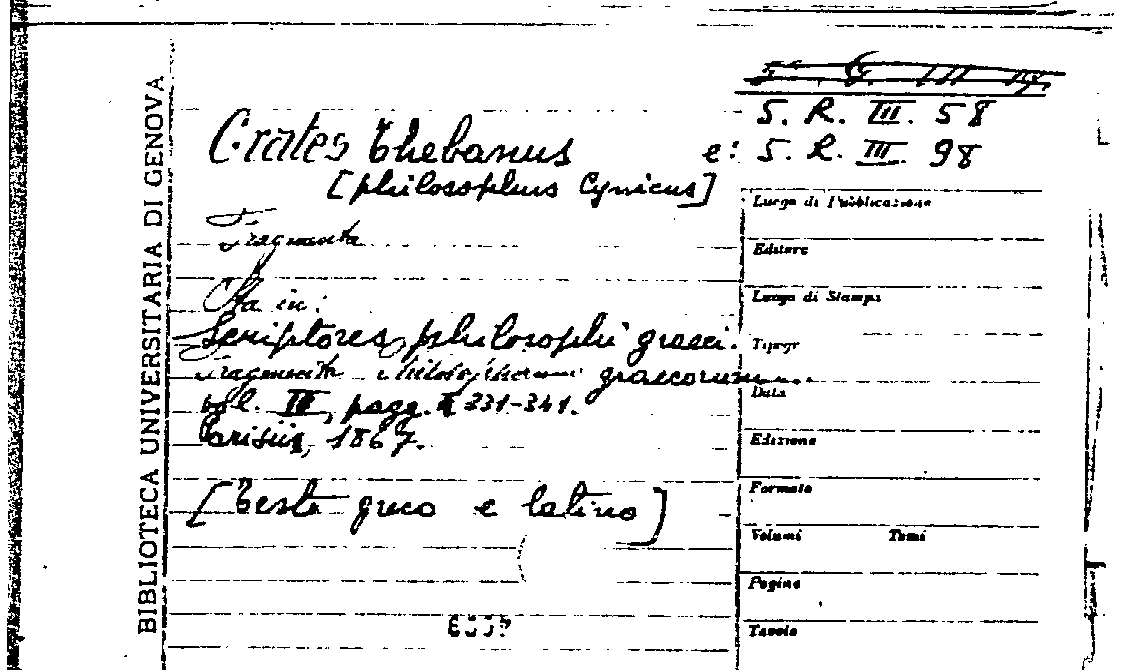 BIBLIOTECA UNIVERSITARIA DI GENOVA
S. R. III. 58
Crates Thebanus e: S. R. III. 98
[philosophus Cynicus]
Fragmenta
Sta in:
Scriptores philosophi graeci.
Fragmenta philosophorum graecorum...
vol. III, pagg. 331-341.
Parisiis, 1867.
[Testo greco e latino]
Luogo di Pubblicazione
Editore
Luogo di Stampa
Tipogr
Data
Edizione
Formato
Volumi Tomi
Pagine
Tavole